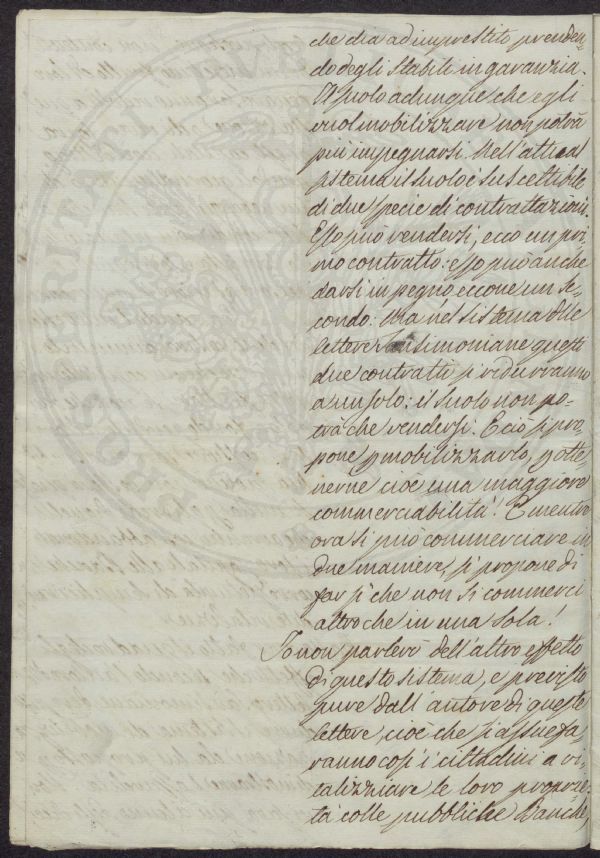 che dia ad imprestito prenden-
do degli stabili in garanzia.
Il suolo adunque che egli
vuol mobilizzare non potrà
più impegnarsi. Nell'attual
sistema il suolo è suscettibile
di due specie di contrattazioni.
Esso può vendersi, ecco un pri-
mo contratto: esso può anche
darsi in pegno eccone un se-
condo: Ma nel sistema delle
lettere Sansimoniane questi
due contratti si ridurranno
a un solo: il suolo non po-
trà che vendersi. E ciò si pro-
pone p mobilizzarlo, p otte-
nerne cioè una maggiore
commerciabilità! E mentre
ora si può commerciare in
due maniere, si propone di
far sì che non si commerci
altro che in una sola!
Io non parlerò dell'altro effetto
di questo sistema, e previsto
pure dall'autore di queste
lettere, cioè che si assuefa-
ranno così i cittadini a vi-
talizziare le loro proprie-
tà colle pubbliche Banche
PROSPERITATI PVB